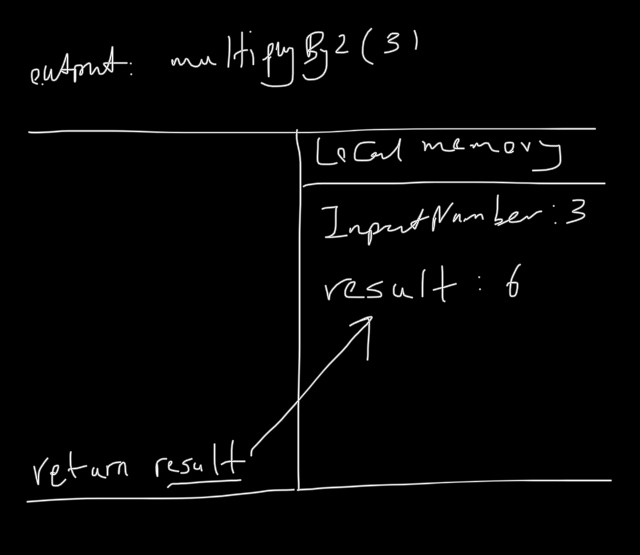 output: multiplyBy2(3)
Local memory
InputNumber: 3
result: 6
return result